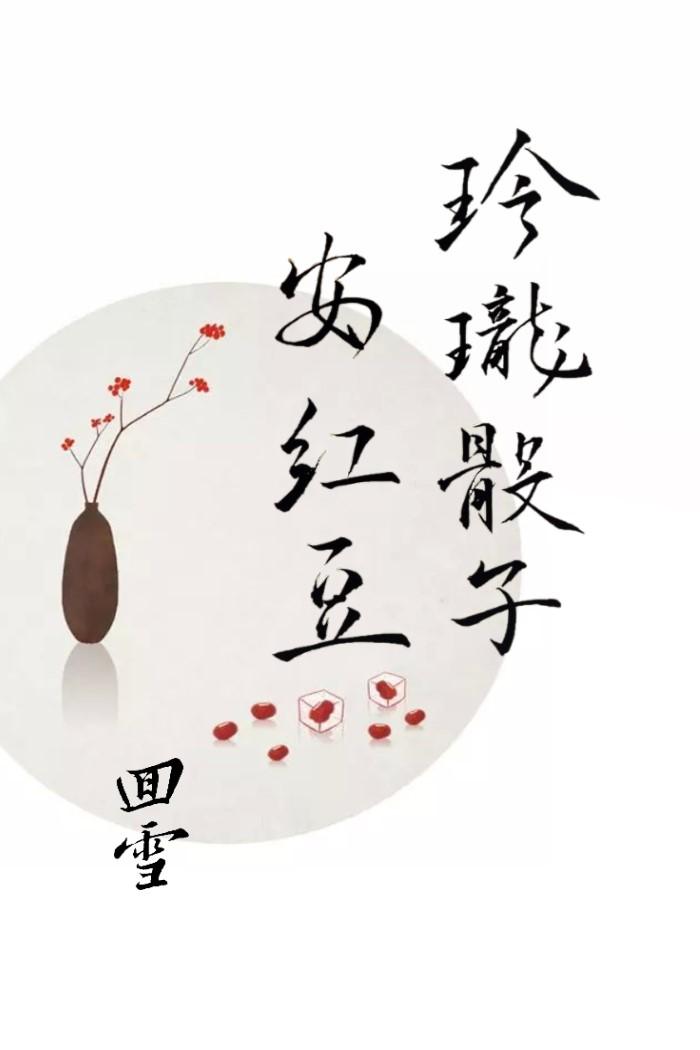 玲瓏骰子
安红豆
回雪